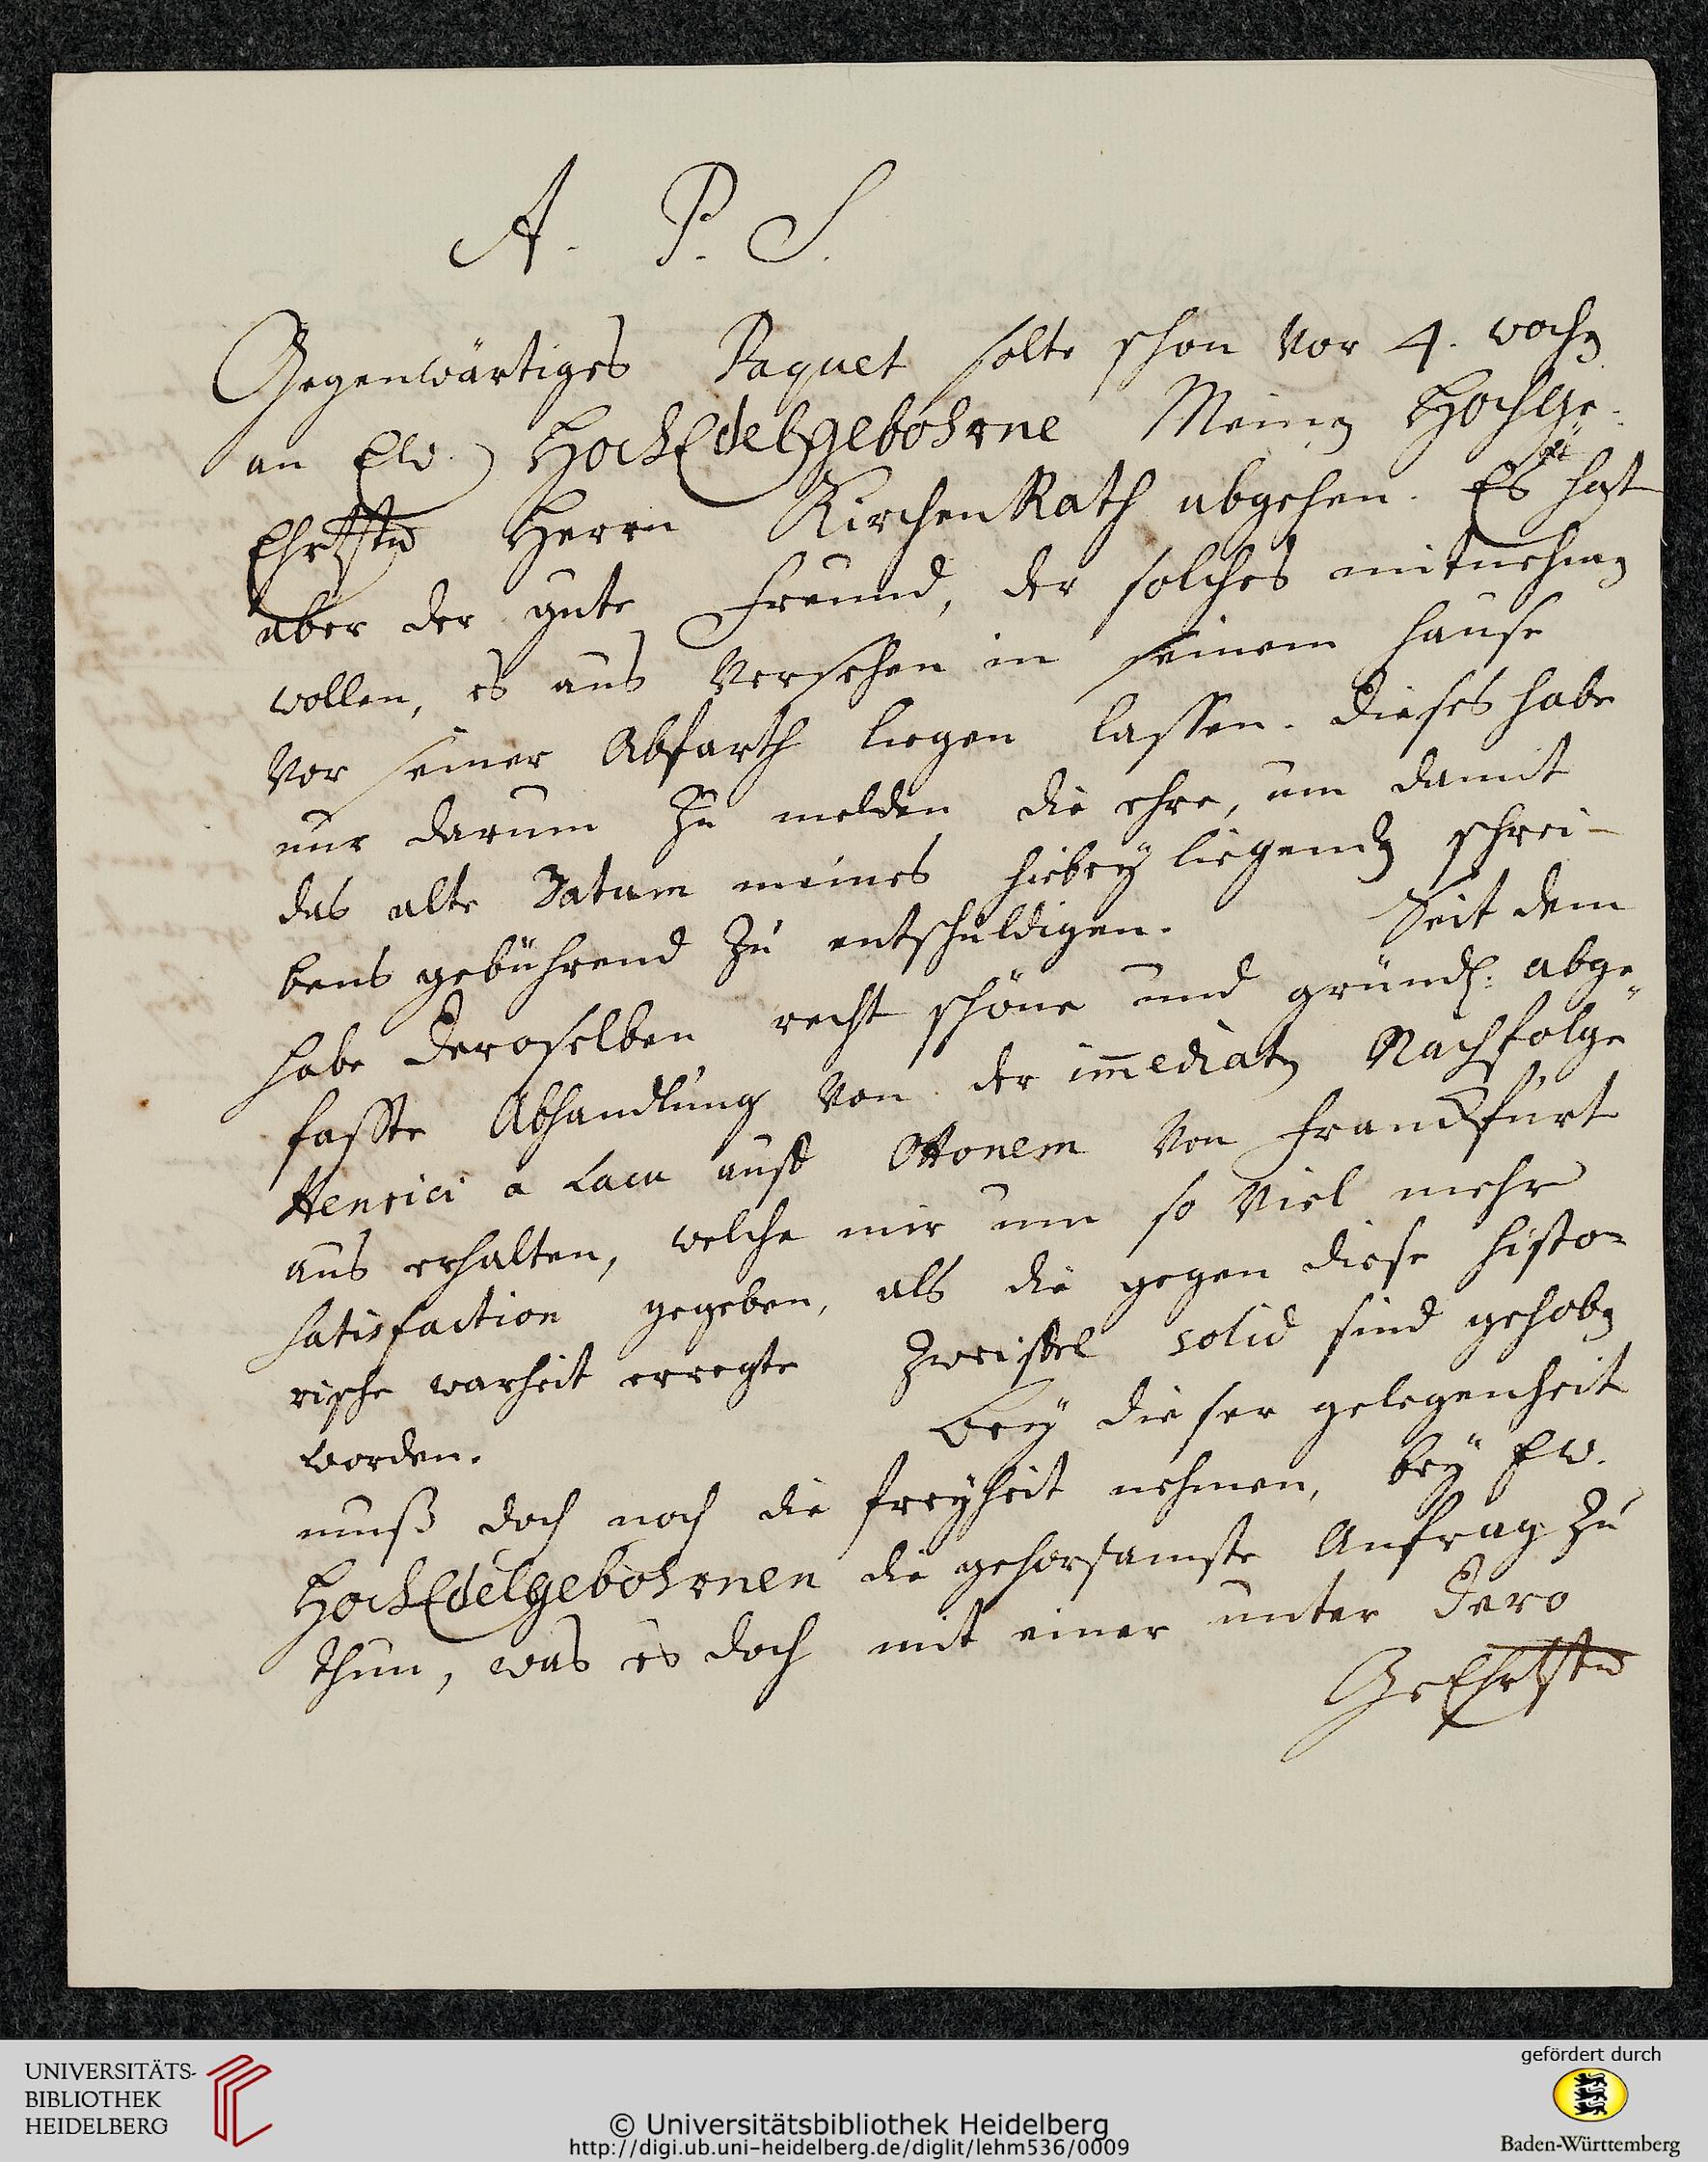 A. P. S.
Gegenwärtiges Paquet solte schon vor 4. wochen
an Ew. HochEdelgebohrne Meinen HochGe-
Ehrtsten Herrn KirchenRath abgehen. Es hat
aber der gute Freund, der solches mitnehmen
wollen, es aus Versehen in seinem Hause
vor seiner Abfarth liegen lassen. Dieses habe
nur darum zu melden die ehre, um damit
das alte Datum meines hiebey liegenden schrei-
bens gebührend zu entschuldigen. Seit dem
habe Deroselben recht schöne und gründl: abge-
faßte Abhandlung von der im̅ediaten Nachfolge
Henrici a Lacu auff Ottonem von Franckfurt
aus erhalten, welche mir um so viel mehr
satisfaction gegeben, als die gegen diese histo-
rische warheit erregte Zweiffel solid sind gehoben
worden. Bey dieser gelegenheit
muß doch noch die freyheit nehmen, bey Ew.
HochEdelgebohrnen die gehorsamste Anfrag zu
thun, was es doch mit einer unter Dero
GeEhrtsten
UNIVERSITÄTS-
BIBLIOTHEK
HEIDELBERG
© Universitätsbibliothek Heidelberg
http://digi.ub.uni-heidelberg.de/diglit/lehm536/0009
gefördert durch
Baden-Württemberg